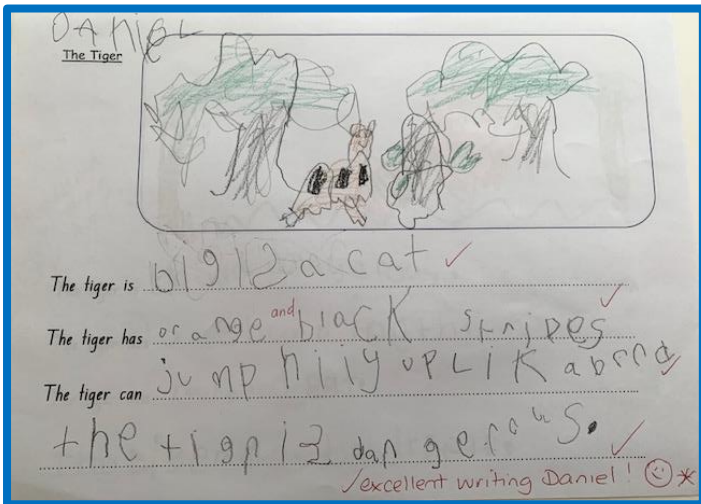 DANieL
The Tiger
The tiger is big is a cat ✓
The tiger has orange and black stripes ✓
The tiger can jump hiiy up Lik a
the tigr is dangerous. ✓
✓excellent writing Daniel! ☺ *